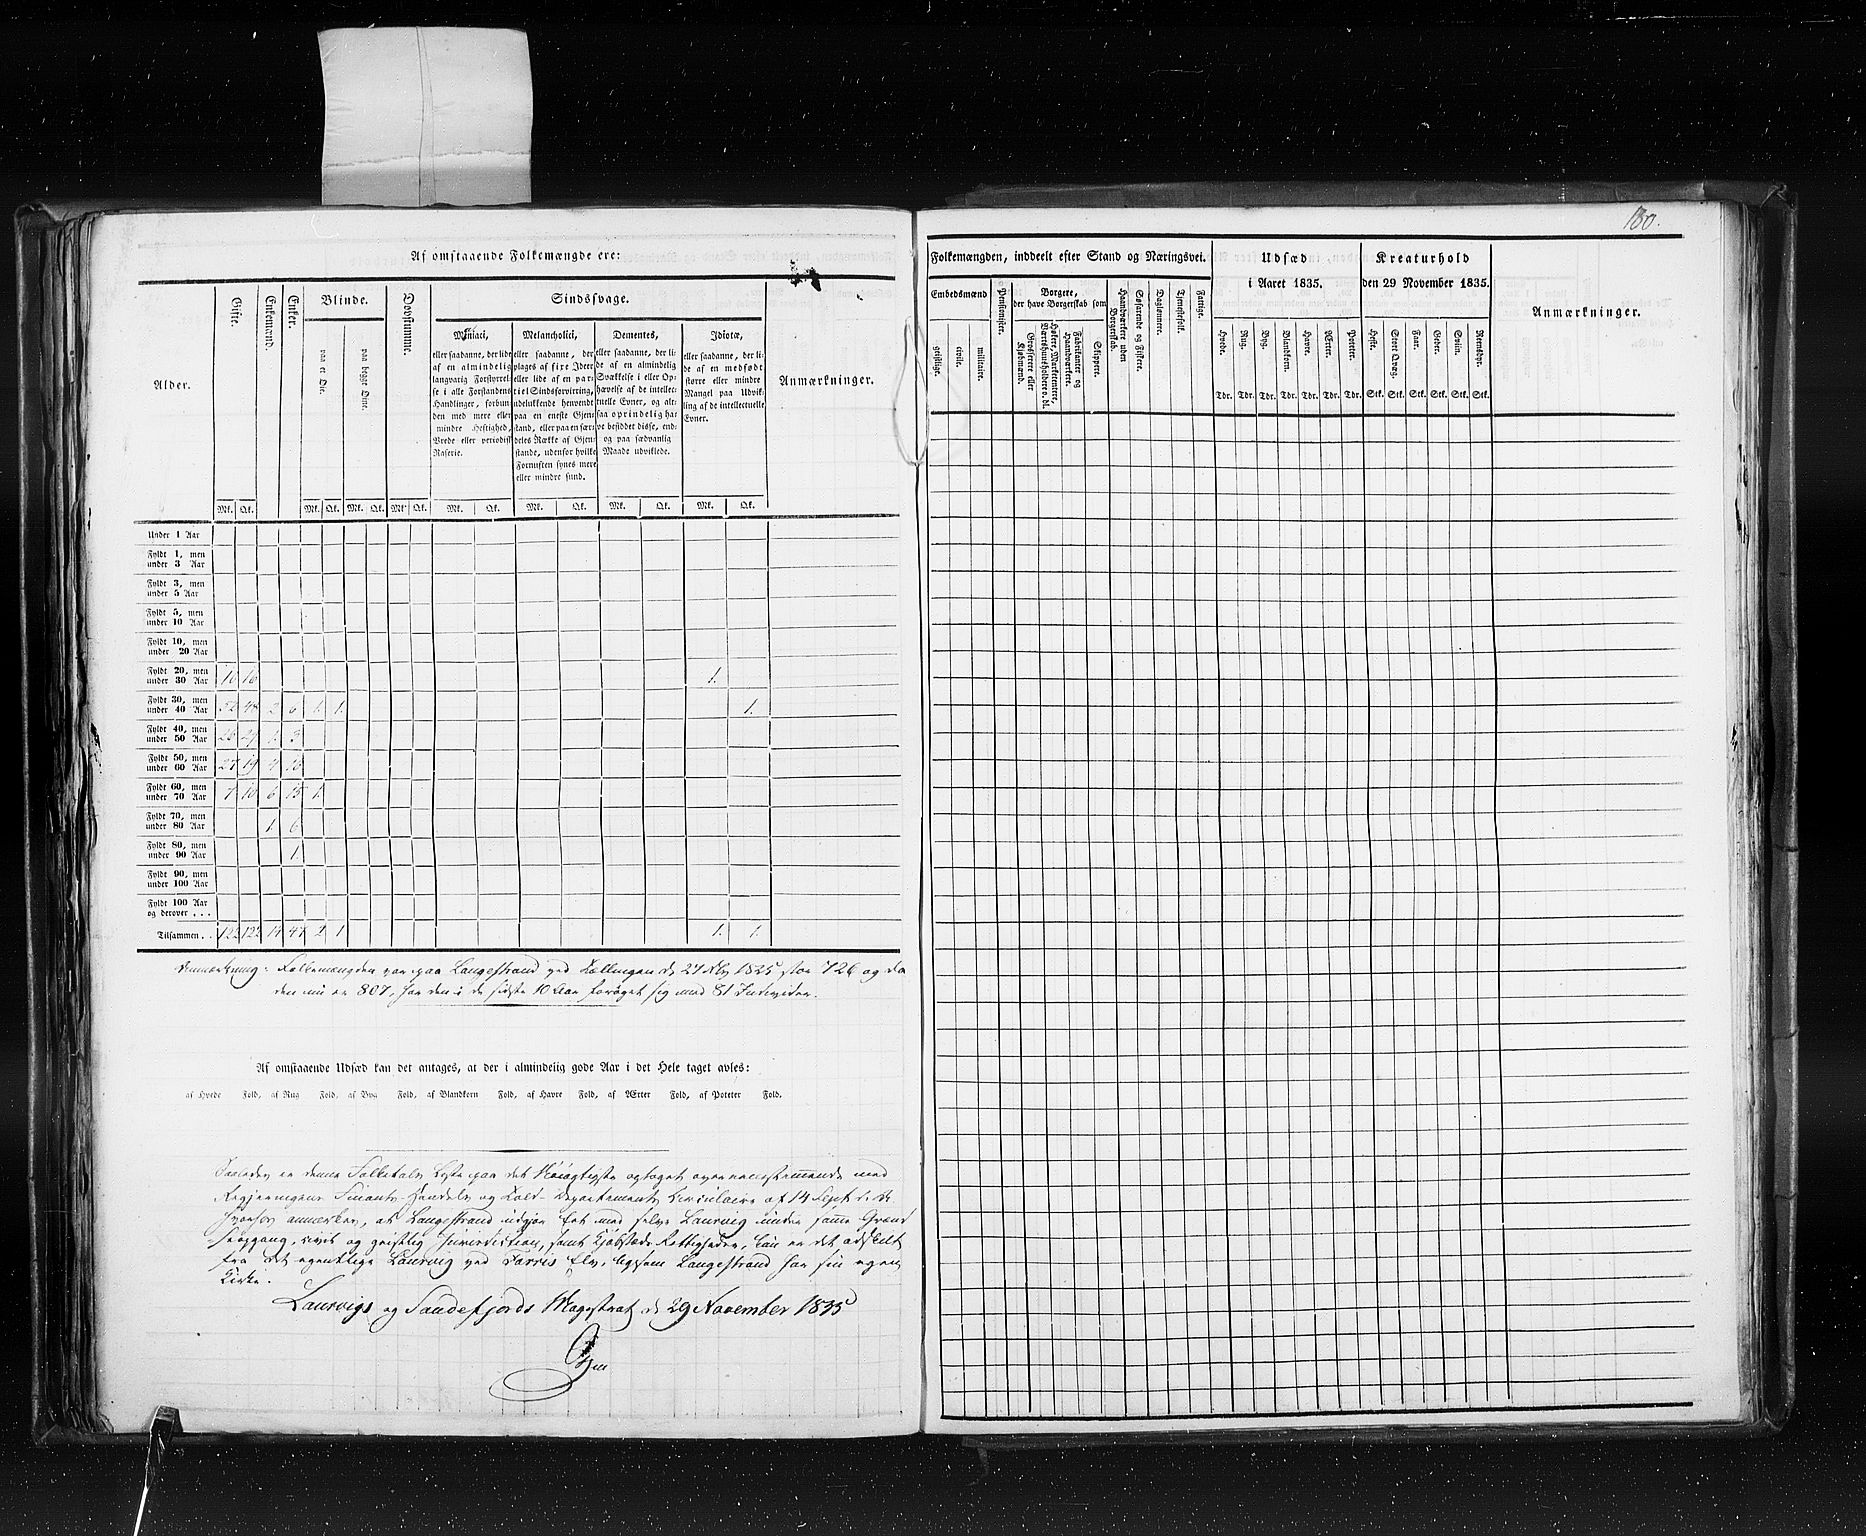 Af omstaaende Folkemængde ere:
Alder.
Gifte.
Enkemænd.
Enker.
Blinde.
paa et Øie.
paa begge Øine.
Døvstumme.
Sindssvage.
Maniaci,
eller saadanne, der lide
af en almindelig
langvarig Forstyrrel-
se i alle Forstandens
Handlinger, forbun-
den med mere eller
mindre Heftighed,
Vrede eller periodisk
Raserie.
Melancholici,
eller saadanne, der
plages af fixe Ideer
eller lide af en par-
tiel Sindsforvirring,
udelukkende henvendt
paa en eneste Gjen-
stand, eller paa en sær-
deles Række af Gjen-
stande, udenfor hvilke
Fornuften synes mere
eller mindre sund.
Dementes,
eller saadanne, der li-
de af en almindelig
Svækkelse i eller Op-
hævelse af de intellec-
tuelle Evner, og alt-
saa oprindelig ha-
ve besiddet disse, end-
og paa sædvanlig
Maade udviklede.
Idiotæ,
eller saadanne, der li-
de af en medfødt
større eller mindre
Mangel paa Udvik-
ling af de intellectuelle
Evner.
Anmærkninger.
Mk. Qk. Mk. Qk. Mk. Qk. Mk. Qk. Mk. Qk. Mk. Qk. Mk. Qk. Mk. Qk.
Under 1 Aar
Fyldt 1, men
under 3 Aar
Fyldt 3, men
under 5 Aar
Fyldt 5, men
under 10 Aar
Fyldt 10, men
under 20 Aar
Fyldt 20, men
under 30 Aar 10 16 1.
Fyldt 30, men
under 40 Aar 52 48 2 6 1. 1. 1.
Fyldt 40, men
under 50 Aar 26 29 1. 3
Fyldt 50, men
under 60 Aar 27 19 4 16
Fyldt 60, men
under 70 Aar 7 10 6 15 1.
Fyldt 70, men
under 80 Aar 1. 6
Fyldt 80, men
under 90 Aar 1.
Fyldt 90, men
under 100 Aar
Fyldt 100 Aar
og derover . . .
Tilsammen . . 122 122 14 47 2 1 1. 1.
Anmærkning: Folkemængden var paa Langestrand ved Tællingen d: 27 Nbr 1825 stor 726 og da
den nu er 807, har den i de sidste 10 Aar forøget sig med 81 Individer.
Af omstaaende Udsæd kan det antages, at der i almindelig gode Aar i det Hele taget avles:
af Hvede Fold, af Rug Fold, af Byg Fold, af Blandkorn Fold, af Havre Fold, af Ærter Fold, af Poteter Fold.
Saaledes er denne Folketals Liste paa det Nøiagtigste optaget overeensstemmende med
Regjeringens Finants- Handels og Told- Departements Circulaire af 14 Sept. d. A.
hvorhos anmærkes, at Langestrand udgjør Eet med selve Laurvig under samme Grænd
seegang, civil og geistlig Jurisdiction, samt Kjøbstads Rettigheder, kun er det adskilt
fra det egentlige Laurvig ved Farris Elv, ligesom Langestrand har sin egen
Kirke.
Laurvigs og Sandefjords Magistrat d: 29 November 1835
180.
Folkemængden, inddeelt efter Stand og Næringsvei.
Embedsmænd
geistlige.
civile.
militaire.
Pensionister.
Borgere,
der have Borgerskab som
Grosserere eller
Kjøbmænd.
Høkere, Marketentere,
Værtshuusholdere o. dl.
Fabrikanter og
Haandværkere.
Skippere.
Haandværkere uden
Borgerskab.
Søfarende og Fiskere.
Daglønnere.
Tjenestefolk.
Fattige.
Udsæd
i Aaret 1835.
Hvede.
Rug.
Byg.
Blandkorn.
Havre.
Ærter.
Poteter.
Tdr. Tdr. Tdr. Tdr. Tdr. Tdr. Tdr.
Kreaturhold
den 29 November 1835.
Heste.
Stort Qvæg.
Faar.
Geder.
Sviin.
Reensdyr.
Stk. Stk. Stk. Stk. Stk. Stk.
Anmærkninger.